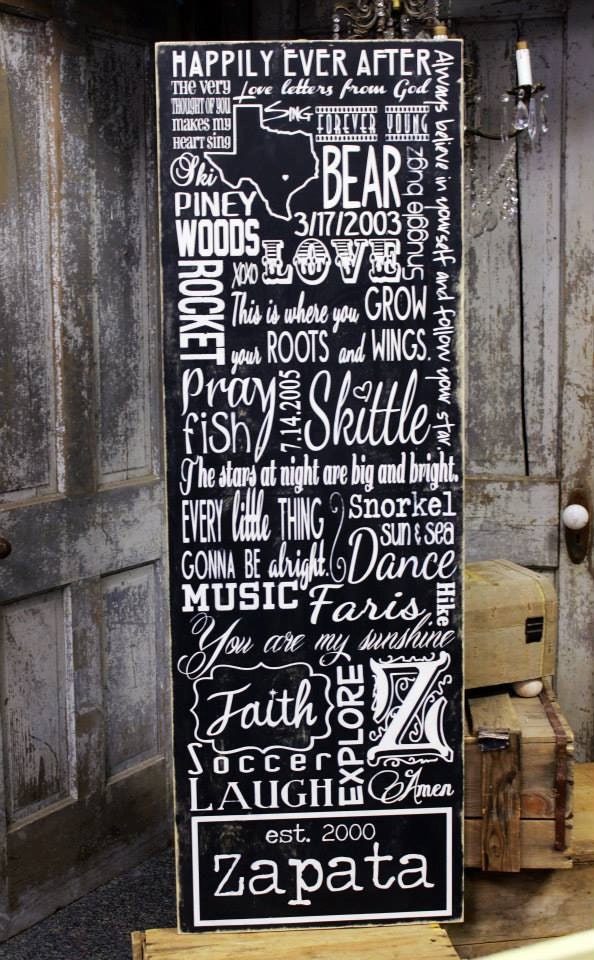 HAPPILY EVER AFTER
Always believe in yourself and follow your star
the very
thought of you
makes my
heart sing
Love letters from God
Sing
FOREVER YOUNG
Ski
BEAR
PINEY
WOODS
3/17/2003
snuggle bug
xoxo
LOVE
ROCKET
This is where you GROW
your ROOTS and WINGS.
Pray
fish
7.14.2005
Skittle
The stars at night are big and bright.
EVERY little THING
GONNA BE alright.
Snorkel
sun & sea
Dance
MUSIC
Faris
Hike
You are my sunshine
Faith
EXPLORE
Z
Soccer
LAUGH
Amen
est. 2000
Zapata